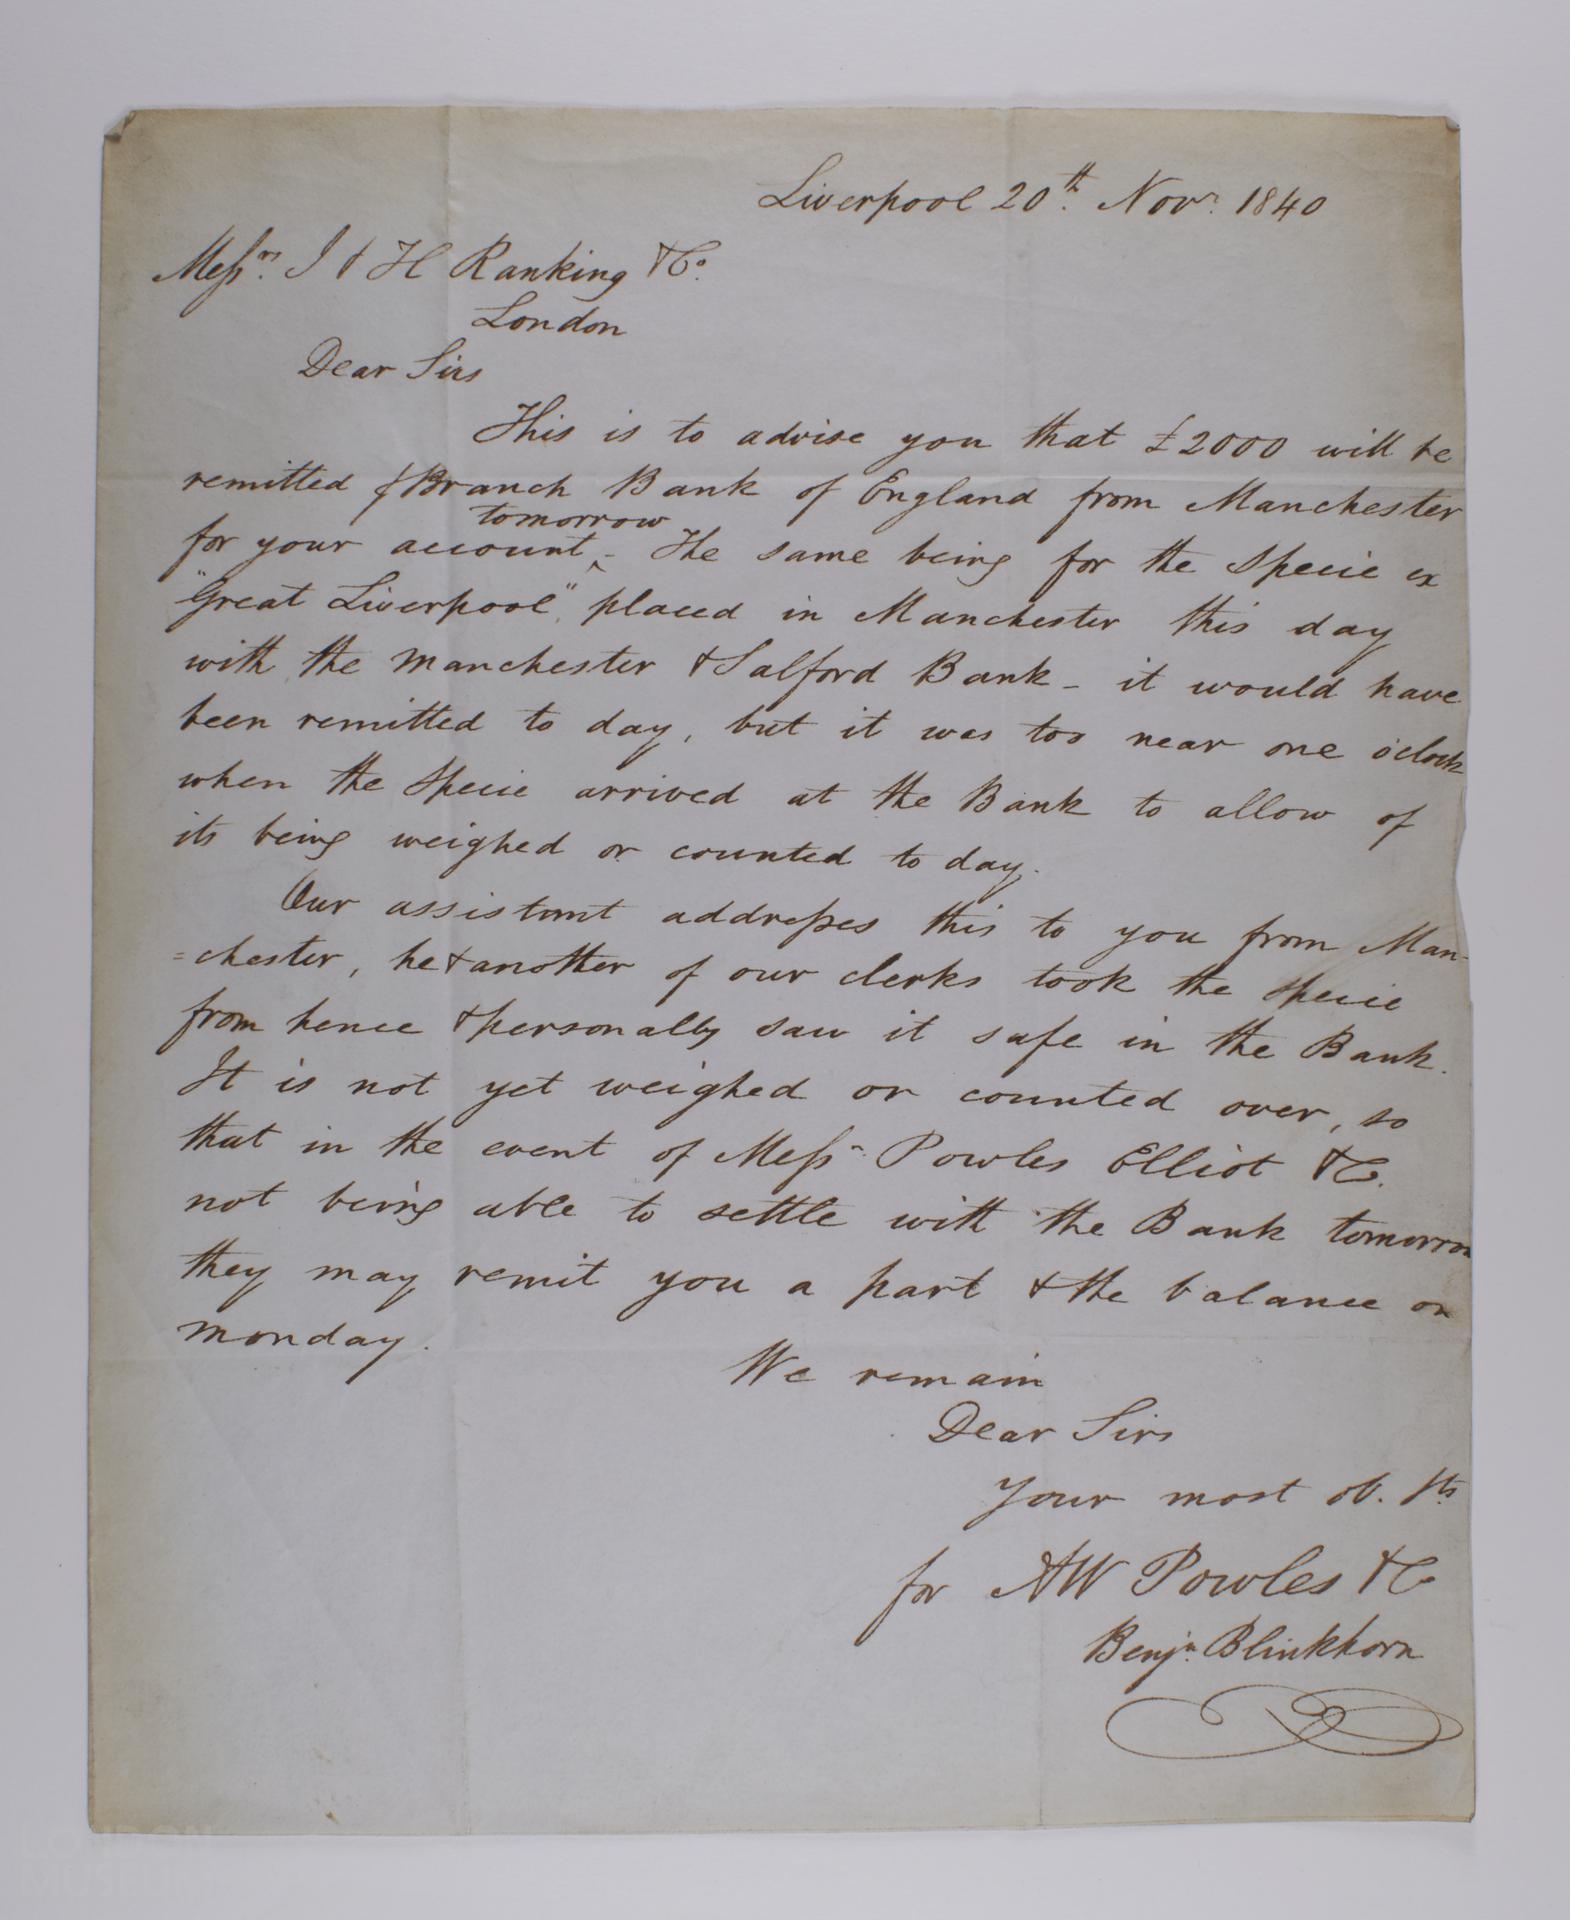 Liverpool 20th. Novr. 1840
Messrs. J & H Ranking & Co.
London
Dear Sirs
This is to advise you that £2000 will be
remitted ⅌ Branch Bank of England from Manchester
tomorrow
for your account ^ - The same being for the Specie ex
"Great Liverpool", placed in Manchester this day
with the Manchester & Salford Bank - it would have
been remitted to day, but it was too near one o'clock
when the Specie arrived at the Bank to allow of
its being weighed or counted to day.
Our assistant addresses this to you from Man-
=chester, he & another of our clerks took the specie
from hence & personally saw it safe in the Bank.
It is not yet weighed or counted over, so
that in the event of Messrs. Powles Elliot & C.
not being able to settle with the Bank tomorrow
they may remit you a part & the balance on
monday.
We remain
Dear Sirs
Your most ob. Sts
for AW Powles & Co
Benjn. Blinkhorn
LONDON
MUSEUM